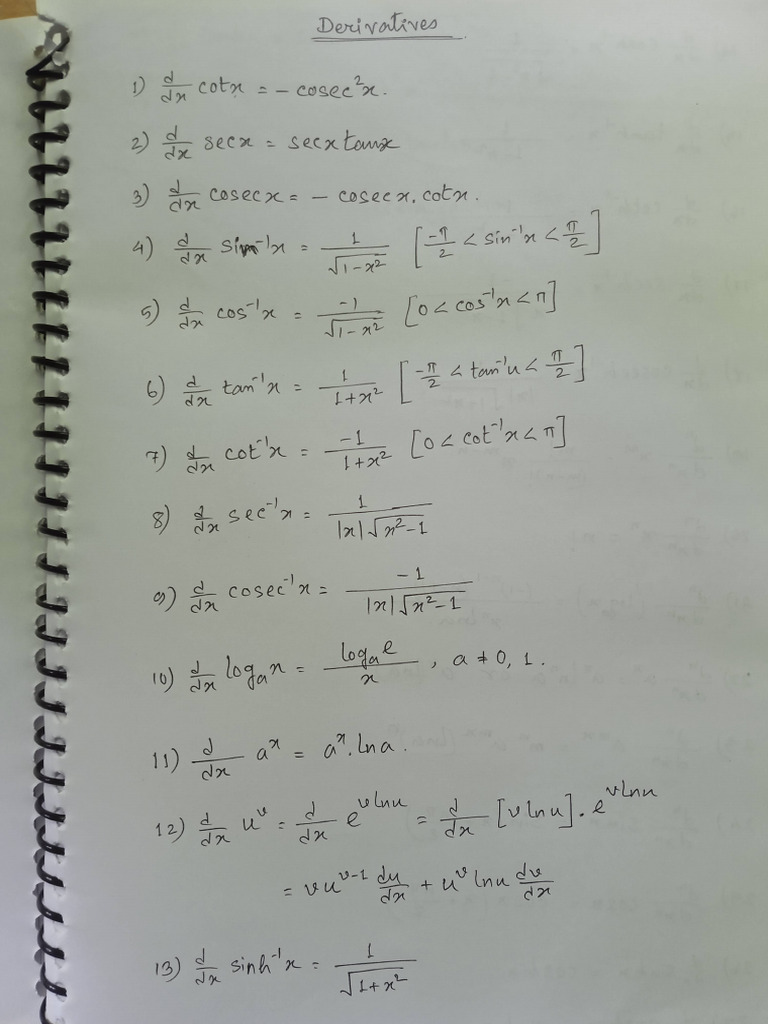 Derivatives
1) d/dx cotx = - cosec²x.
2) d/dx secx = secx tanx
3) d/dx cosecx = - cosecx. cotx.
4) d/dx sin⁻¹x = 1/√(1-x²) [-π/2 < sin⁻¹x < π/2]
5) d/dx cos⁻¹x = -1/√(1-x²) [0 < cos⁻¹x < π]
6) d/dx tan⁻¹x = 1/(1+x²) [-π/2 < tan⁻¹x < π/2]
7) d/dx cot⁻¹x = -1/(1+x²) [0 < cot⁻¹x < π]
8) d/dx sec⁻¹x = 1/(|x|√(x²-1))
9) d/dx cosec⁻¹x = -1/(|x|√(x²-1))
10) d/dx logₐx = logₐe/x , a ≠ 0, 1.
11) d/dx aˣ = aˣ. ln a.
12) d/dx u^v = d/dx e^(v ln u) = d/dx [v ln u]. e^(v ln u)
= v u^(v-1) du/dx + u^v ln u dv/dx
13) d/dx sinh⁻¹x = 1/√(1+x²)